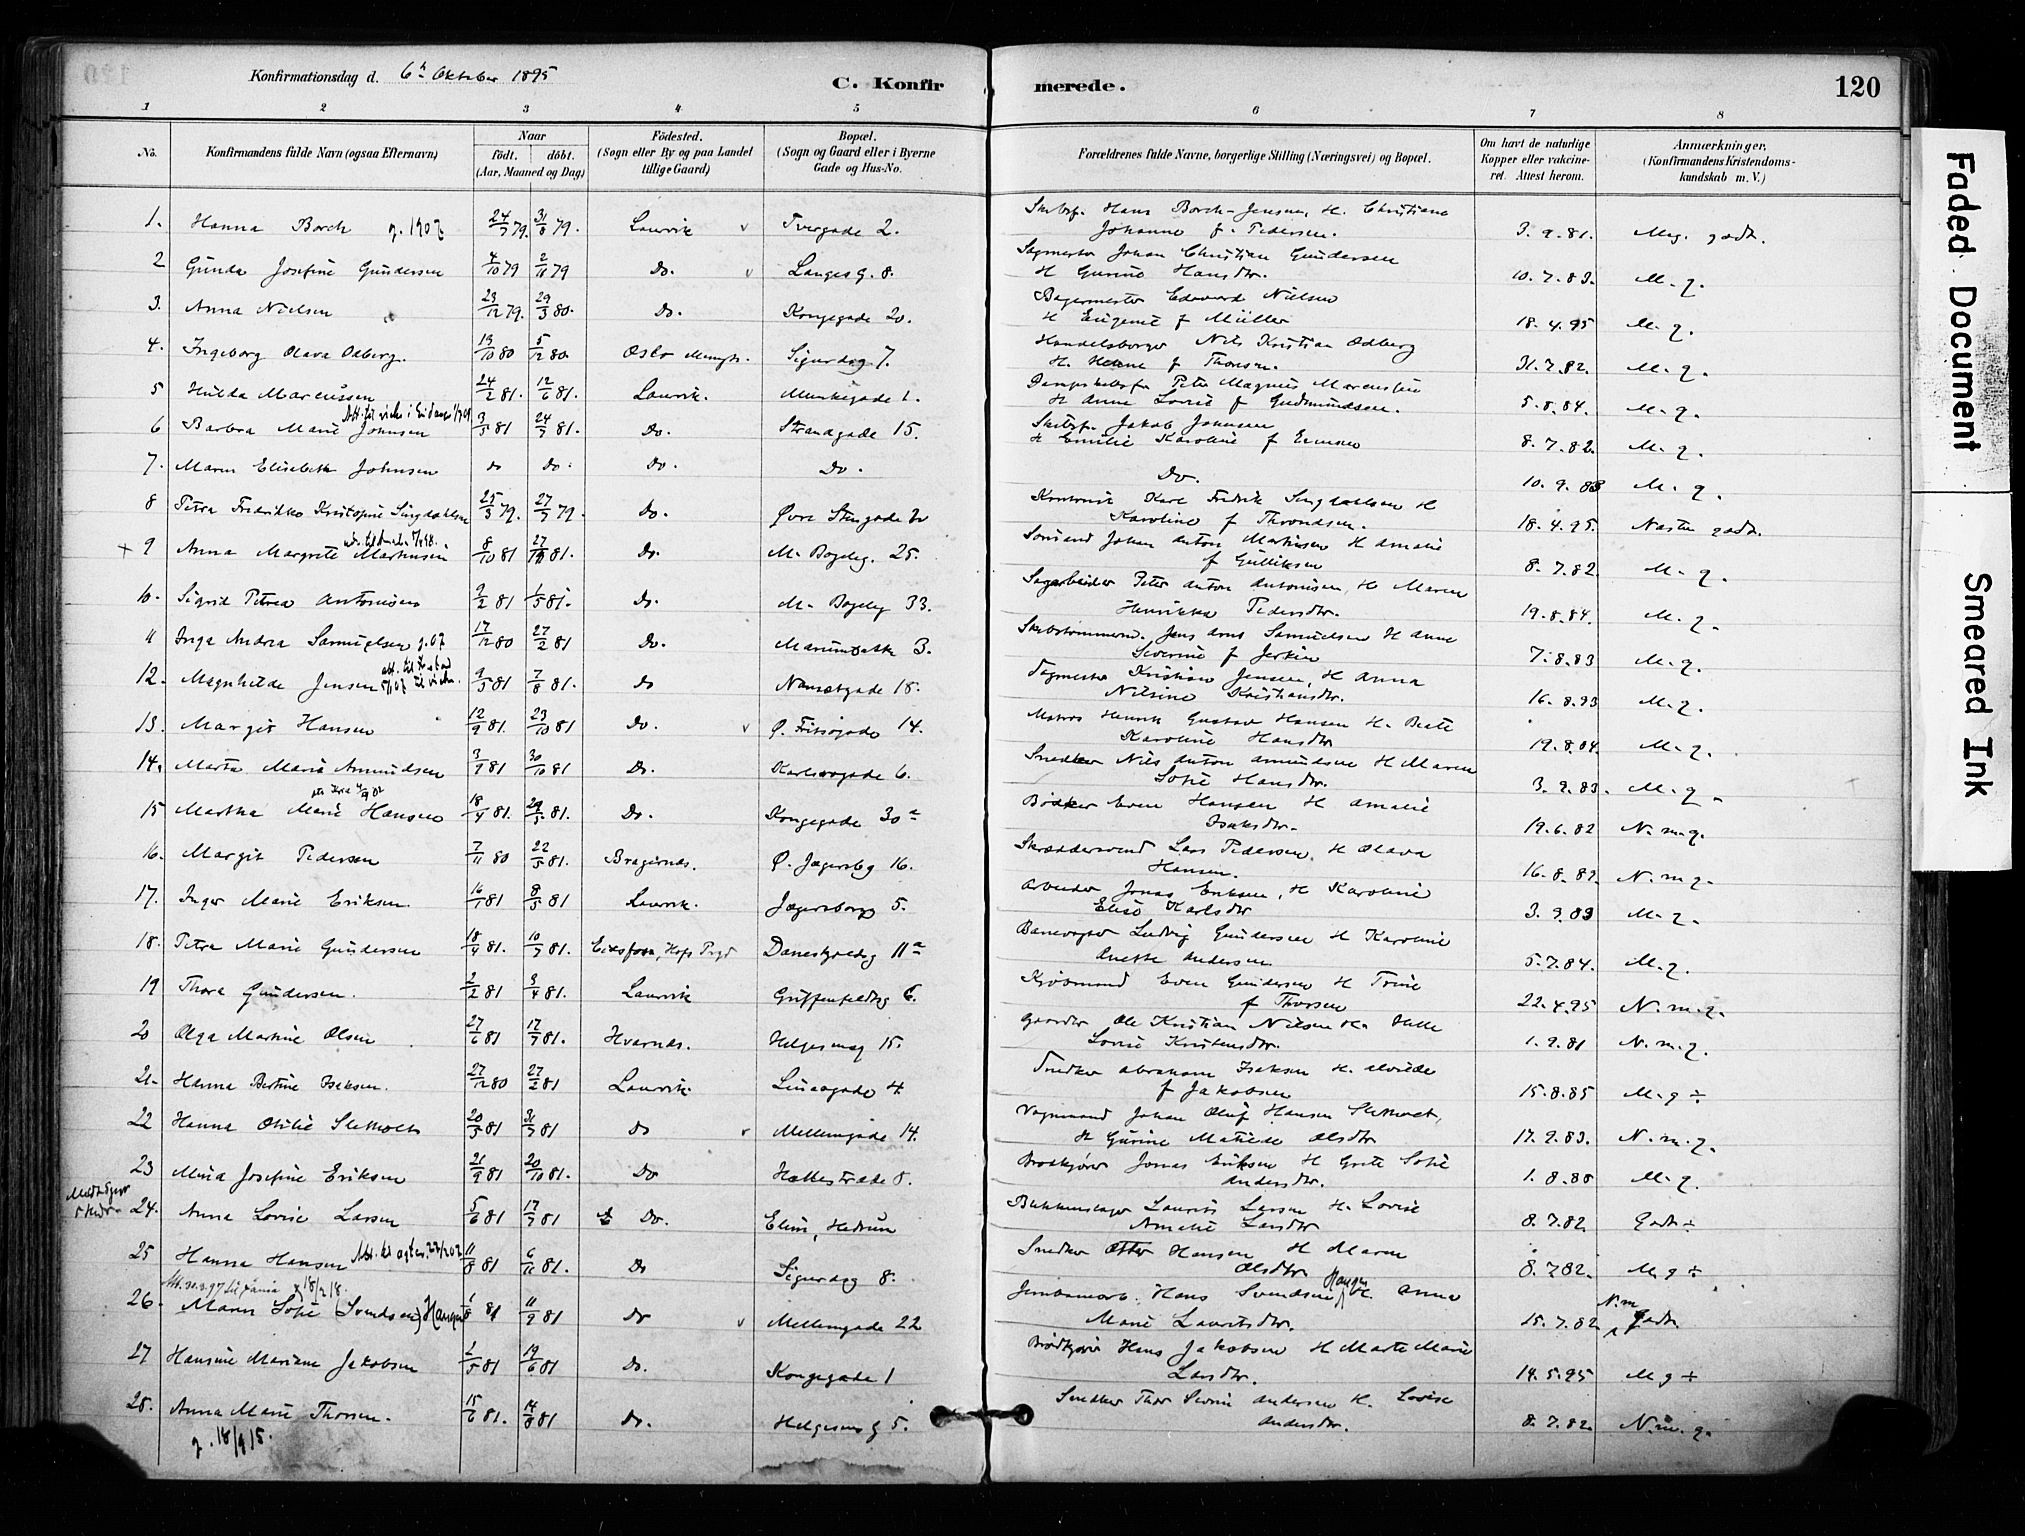 Konfirmationsdag d. 6te Oktober 1895
C. Konfirmerede.
120
1 2 3 4 5 6 7 8
No.
Konfirmandens fulde Navn (ogsaa Efternavn)
Naar
födt. döbt.
(Aar, Maaned og Dag)
Födested.
(Sogn eller By og paa Landet tillige Gaard)
Bopæl.
(Sogn og Gaard eller i Byerne Gade og Hus-No.
Forældrenes fulde Navne, borgerlige Stilling (Næringsvei) og Bopæl.
Om havt de naturlige Kopper eller vakcineret. Attest herom.
Anmærkninger.
(Konfirmandens Kristendomskundskab m. V.)
1. Hanna Borch g. 1907 24/7 79. 31/8 79. Laurvik Tvergade 2. Skibsf. Hans Borch-Jensen, H. Christiane Johanne f. Pedersen. 3.9.81. Meg. godt.
2 Gunda Josefine Gundersen 4/10 79 2/11 79 Do. Langesg. 8. Johan Christian Gundersen H Gurine Hansdtr. 10.7.83. M. g.
3. Anna Nielsen 23/12 79. 29/3 80. Do. Kongegade 20. Bagermester Edvard Nielsen H Eugenie f Müller 18.4.95 M. g.
4. Ingeborg Olava Odberg. 19/10 80 5/12 80. Oslo Sigurdsg 7. Handelsborger Nils Kristian Odberg H. Helene f Thorsen. 31.7.82. M. g.
5 Hulda Marcussen 24/2 81. 12/6 81. Laurvik. Munkegade 1. Dampskibsf. Peter Magnus Marcussen H Anne Lovise f Gudmundsen. 5.8.84. M. g.
6 Barbra Marie Johnsen 3/5 81 24/7 81. Do. Strandgade 15. Skibsf. Jakob Johnsen H Emilie Karoline f 8.7.82. M. g.
7. Maren Elisabeth Johnsen do Do. Do. Do. Do. 10.9.83 M. g.
8 Petra Fredrikke Kristofine Lingdahlsen 25/3 79. 27/7 79. Do. Øvre Stengade Karl Fredrik Lingdahlsen H Karoline f Throndsen. 18.4.95. Næsten godt.
+ 9 Anna Margrete Martinsen 8/10 81 27/12 81. Do. M. Bøgeleg. 25. Johan Anton Martinsen H Amalie f Gulliksen 8.7.82. M. g.
10. Sigrid Petrea Antonisen 9/2 81 1/5 81. Do. M. Bøgeleg 33. Sagarbeider Peter Anton Antonisen, H Maren Henrikka Pedersdtr. 19.8.84. M. g.
11 Inga Andrea Samuelsen g. 07 17/12 80 27/2 81 Do. 3. Skibstømmerm. Jens Arnt Samuelsen H Anne Severine f 7.8.83 M. g.
12. Magnhilde Jensen 9/5 81 7/8 81. Do Nansetgade 18. Kristian Jensen, H Anna Nilsine Kristiansdtr. 16.8.93 M. g.
13. Margit Hansen 12/9 81. 23/10 81 Do. Ø. Fritsøgade 14. Matros Henrik Gustav Hansen H. Beate Karoline Hansdtr 19.8.84. M. g.
14. Marta Maria Amundsen 3/9 81 30/10 81 Do. Karlsrogade 6. Snedker Nils Anton Amundsen H Maren Sofie Hansdtr. 3.9.83. M. g.
15 Martha Marie Hansen 18/4 81. 29/5. 81. Do. Kongegade 30a Bødker Even Hansen H Amalie Isaksdtr. 19.6.82 N. m. g.
16. Margit Pedersen 7/11 80 22/5 81. Bragernæs. Ø. Jegersbg 16. Skræddersvend Lars Pedersen, H Olava Hansen. 16.8.82. N. m. g.
17. Inger Marie Eriksen 16/1 81 8/5 81 Laurvik. Jegersborg 5. Arbeider Jonas Eriksen, H Karoline Elise Karlsdtr 3.9.83 M. g.
18. Petra Marie Gundersen 18/4 81. 10/7 81. Eidsfoss, Hofs Prgd Daneskjoldsg 11a Banevogter Ludvig Gundersen H Karoline Anette Andersen 5.7.84. M. g.
19 Thora Gundersen. 2/2 81 3/4 81. Laurvik Griffenfeldtsg 6. Even Gundersen H Trine f Thorsen 22.4.95 N. m. g.
20 Olga Martine Olsen 27/6 81 17/7 81. Hvarnæs. Helgesensg 15. Gaardbr Ole Kristian Nilsen H. Helle Lovise Kristensdtr. 1.9.81 N. m. g.
21. Hanna Bertine Isaksen. 27/12 80 27/2 81 Laurvik. Linaaegade 4. Snedker Abraham Isaksen H. Alvilde f Jakobsen 15.8.85 M. g ÷
22 Hanna Otilie Slettholt 20/5 81 31/7 81 Do Mellemgade 14. Vognmand Johan Oluf Hansen Slettholt, H Gurine Matilde Olsdtr 17.9.83. N. m. g.
23 Mina Josefine Eriksen 21/9 81 20/10 81. Do Hattestræde 8. Brødkjører Jonas Eriksen H Grete Sofie Andersdtr. 1.8.88 M. g.
24. Anna Lovise Larsen 5/6 81 17/7 81 Do. Elim, Hedrum Blikkenslager Laurits Larsen H. Lovise Amalie Larsdtr 8.7.82. Godt ÷
25 Hanna Hansen 11/8 81 6/11 81. Do Sigurdsg 8. Snedker Otter Hansen H Maren Olsdtr 8.7.82. M. g ÷
26. Maren Sofie (Svendsen) Haugen 1/8 81 11/9 81 Do Mellemgade 22 Jernbanearb. Hans Svendsen Haugen H. Anna Marie Lauritsdtr. 15.7.82. N. m. Godt.
27 Hansine Mariane Jakobsen 2/5 81 19/6 81 Do. Kongegade 1 Brødkjører Hans Jakobsen H Marte Marie Larsdtr. 14.5.95 M g ÷
28. Anna Marie Thorsen. 15/6 81. 14/8 81 Do. Helgesens g 5. Snedker Thor Severin Andersen H. Lovise Andersdtr. 8.7.82. N. m. g.
g. 18/9 15.
Faded Document
Smeared Ink